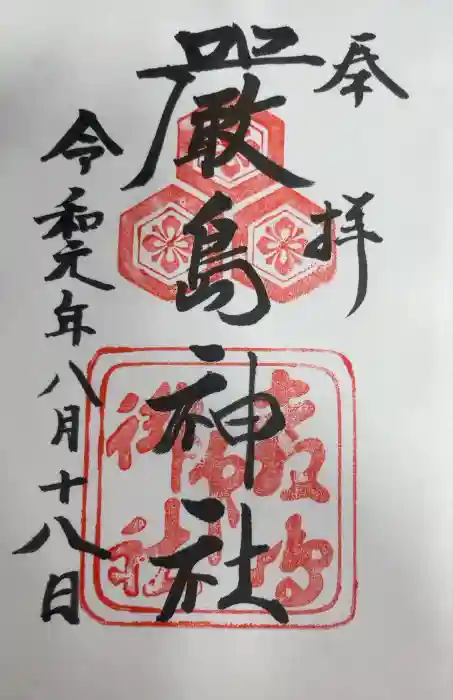 奉拝
厳島神社
令和元年八月十八日